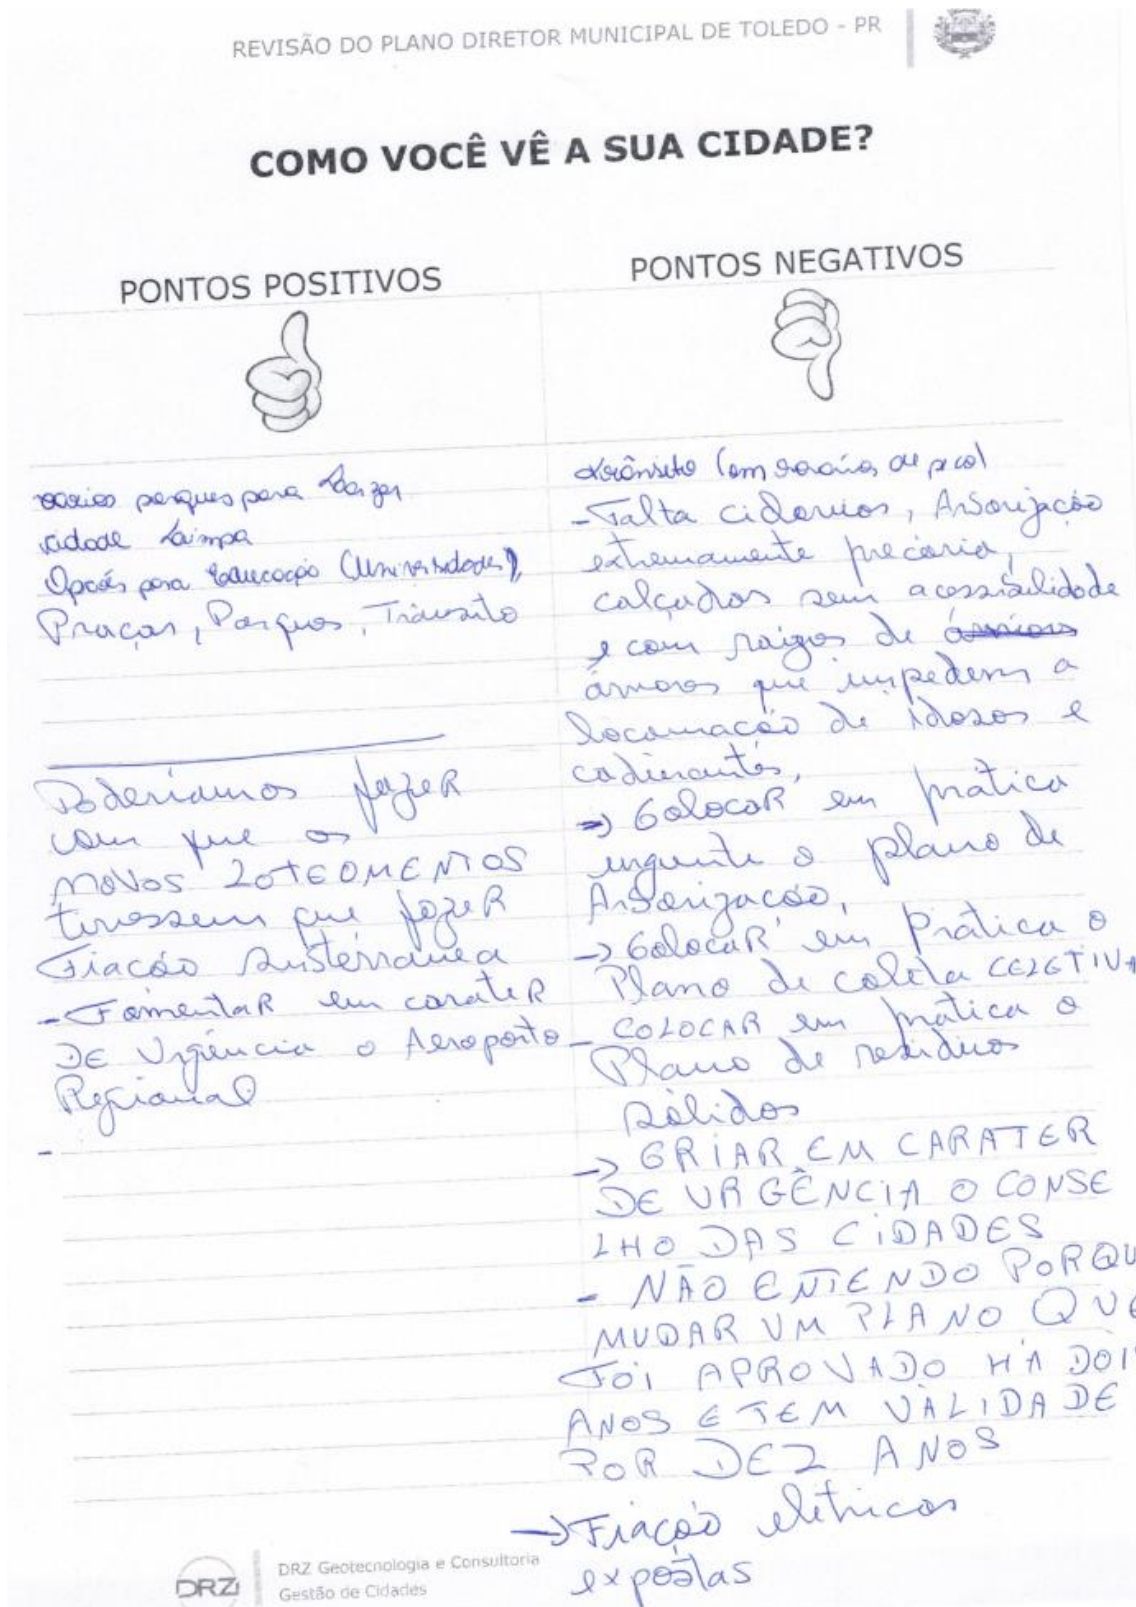 REVISÃO DO PLANO DIRETOR MUNICIPAL DE TOLEDO - PR
COMO VOCÊ VÊ A SUA CIDADE?
PONTOS POSITIVOS
varios parques para Lazer
cidade Limpa
Opcões para Educação (Universidades),
Praças, Parques, Trânsito
Poderiamos fazeR
com que os
novos LOTEAMENTOS
tivessem que fazeR
Fiação Subterrânea
- FomentaR em carateR
DE Urgência o Aeroporto
Regional
-
PONTOS NEGATIVOS
trânsito (em horários de pico)
- Falta ciclovias, Arborização
extremamente precária,
calçadas sem acessibilidade
e com raizes de
árvores que impedem a
locomoção de idosos e
cadeirantes,
→ ColocaR em prática
urgente o plano de
Arborização,
→ ColocaR em Prática o
Plano de coleta CELETIVA
- COLOCAR em prática o
Plano de residuos
sólidos
→ CRIAR EM CARATER
DE URGÊNCIA O CONSE
LHO DAS CIDADES
- NÃO ENTENDO PORQU
MUDAR UM PLANO QUE
FOI APROVADO HÁ DOI
ANOS E TEM VALIDADE
POR DEZ ANOS
→ Fiação elétricas
expostas
DRZ
DRZ Geotecnologia e Consultoria
Gestão de Cidades